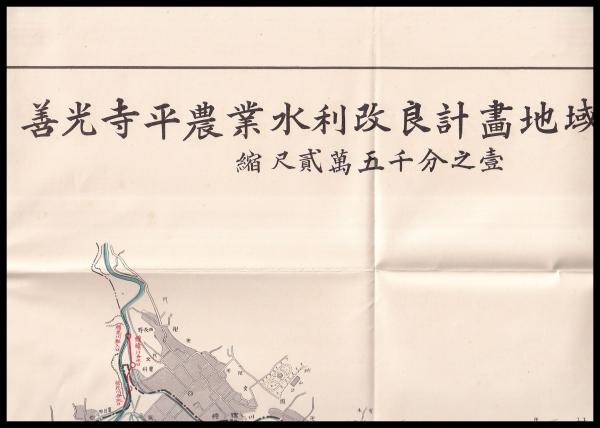 善光寺平農業水利改良計畫地域
縮尺貳萬五千分之壹